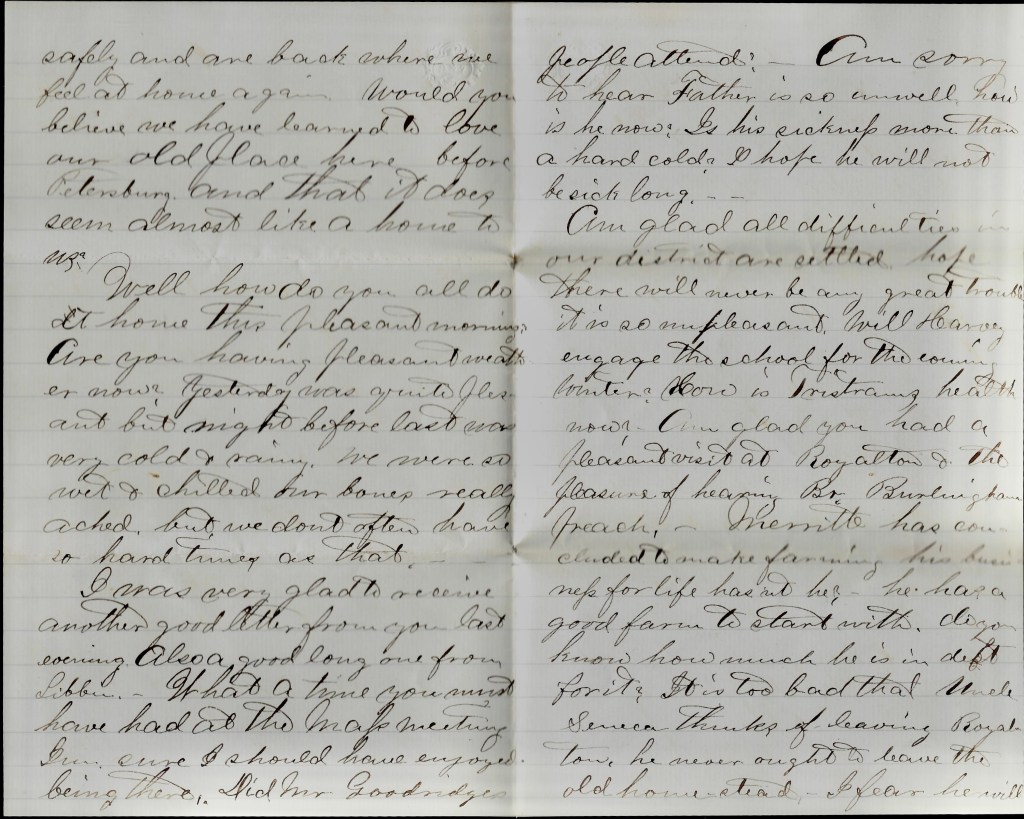 safely and are back where we
feel at home again. Would you
believe we have learned to love
our old place here before
Petersburg. and that it does
seem almost like a home to
us?
Well how do you all do
at home this pleasant morning?
Are you having pleasant weath
er now? Yesterday was quite pleas-
ant but night before last was
very cold & rainy. We were so
wet & chilled our bones really
ached, but we dont often have
so hard times as that. -
I was very glad to receive
another good letter from you last
evening. Also a good long one from
Libbie. - What a time you must
have had at the Mass meeting
I'm sure I should have enjoyed
being there. Did Mr Goodridges
people attend? - Am sorry
to hear Father is so unwell, how
is he now? Is his sickness more than
a hard cold? I hope he will not
be sick long. - -
Am glad all difficulties in
our district are settled. hope
there will never be any great trouble
it is so unpleasant. Will Harvey
engage the school for the coming
winter? How is Tristrams health
now? Am glad you had a
pleasant visit at Royalton & the
pleasure of hearing Br. Burlingham
preach. - Merritte has con-
cluded to make farming his busi-
ness for life hasnt he? - he has a
good farm to start with. do you
know how much he is in debt
for it? It is too bad that Uncle
Seneca thinks of leaving Royal-
ton, he never ought to leave the
old home-stead, - I fear he will